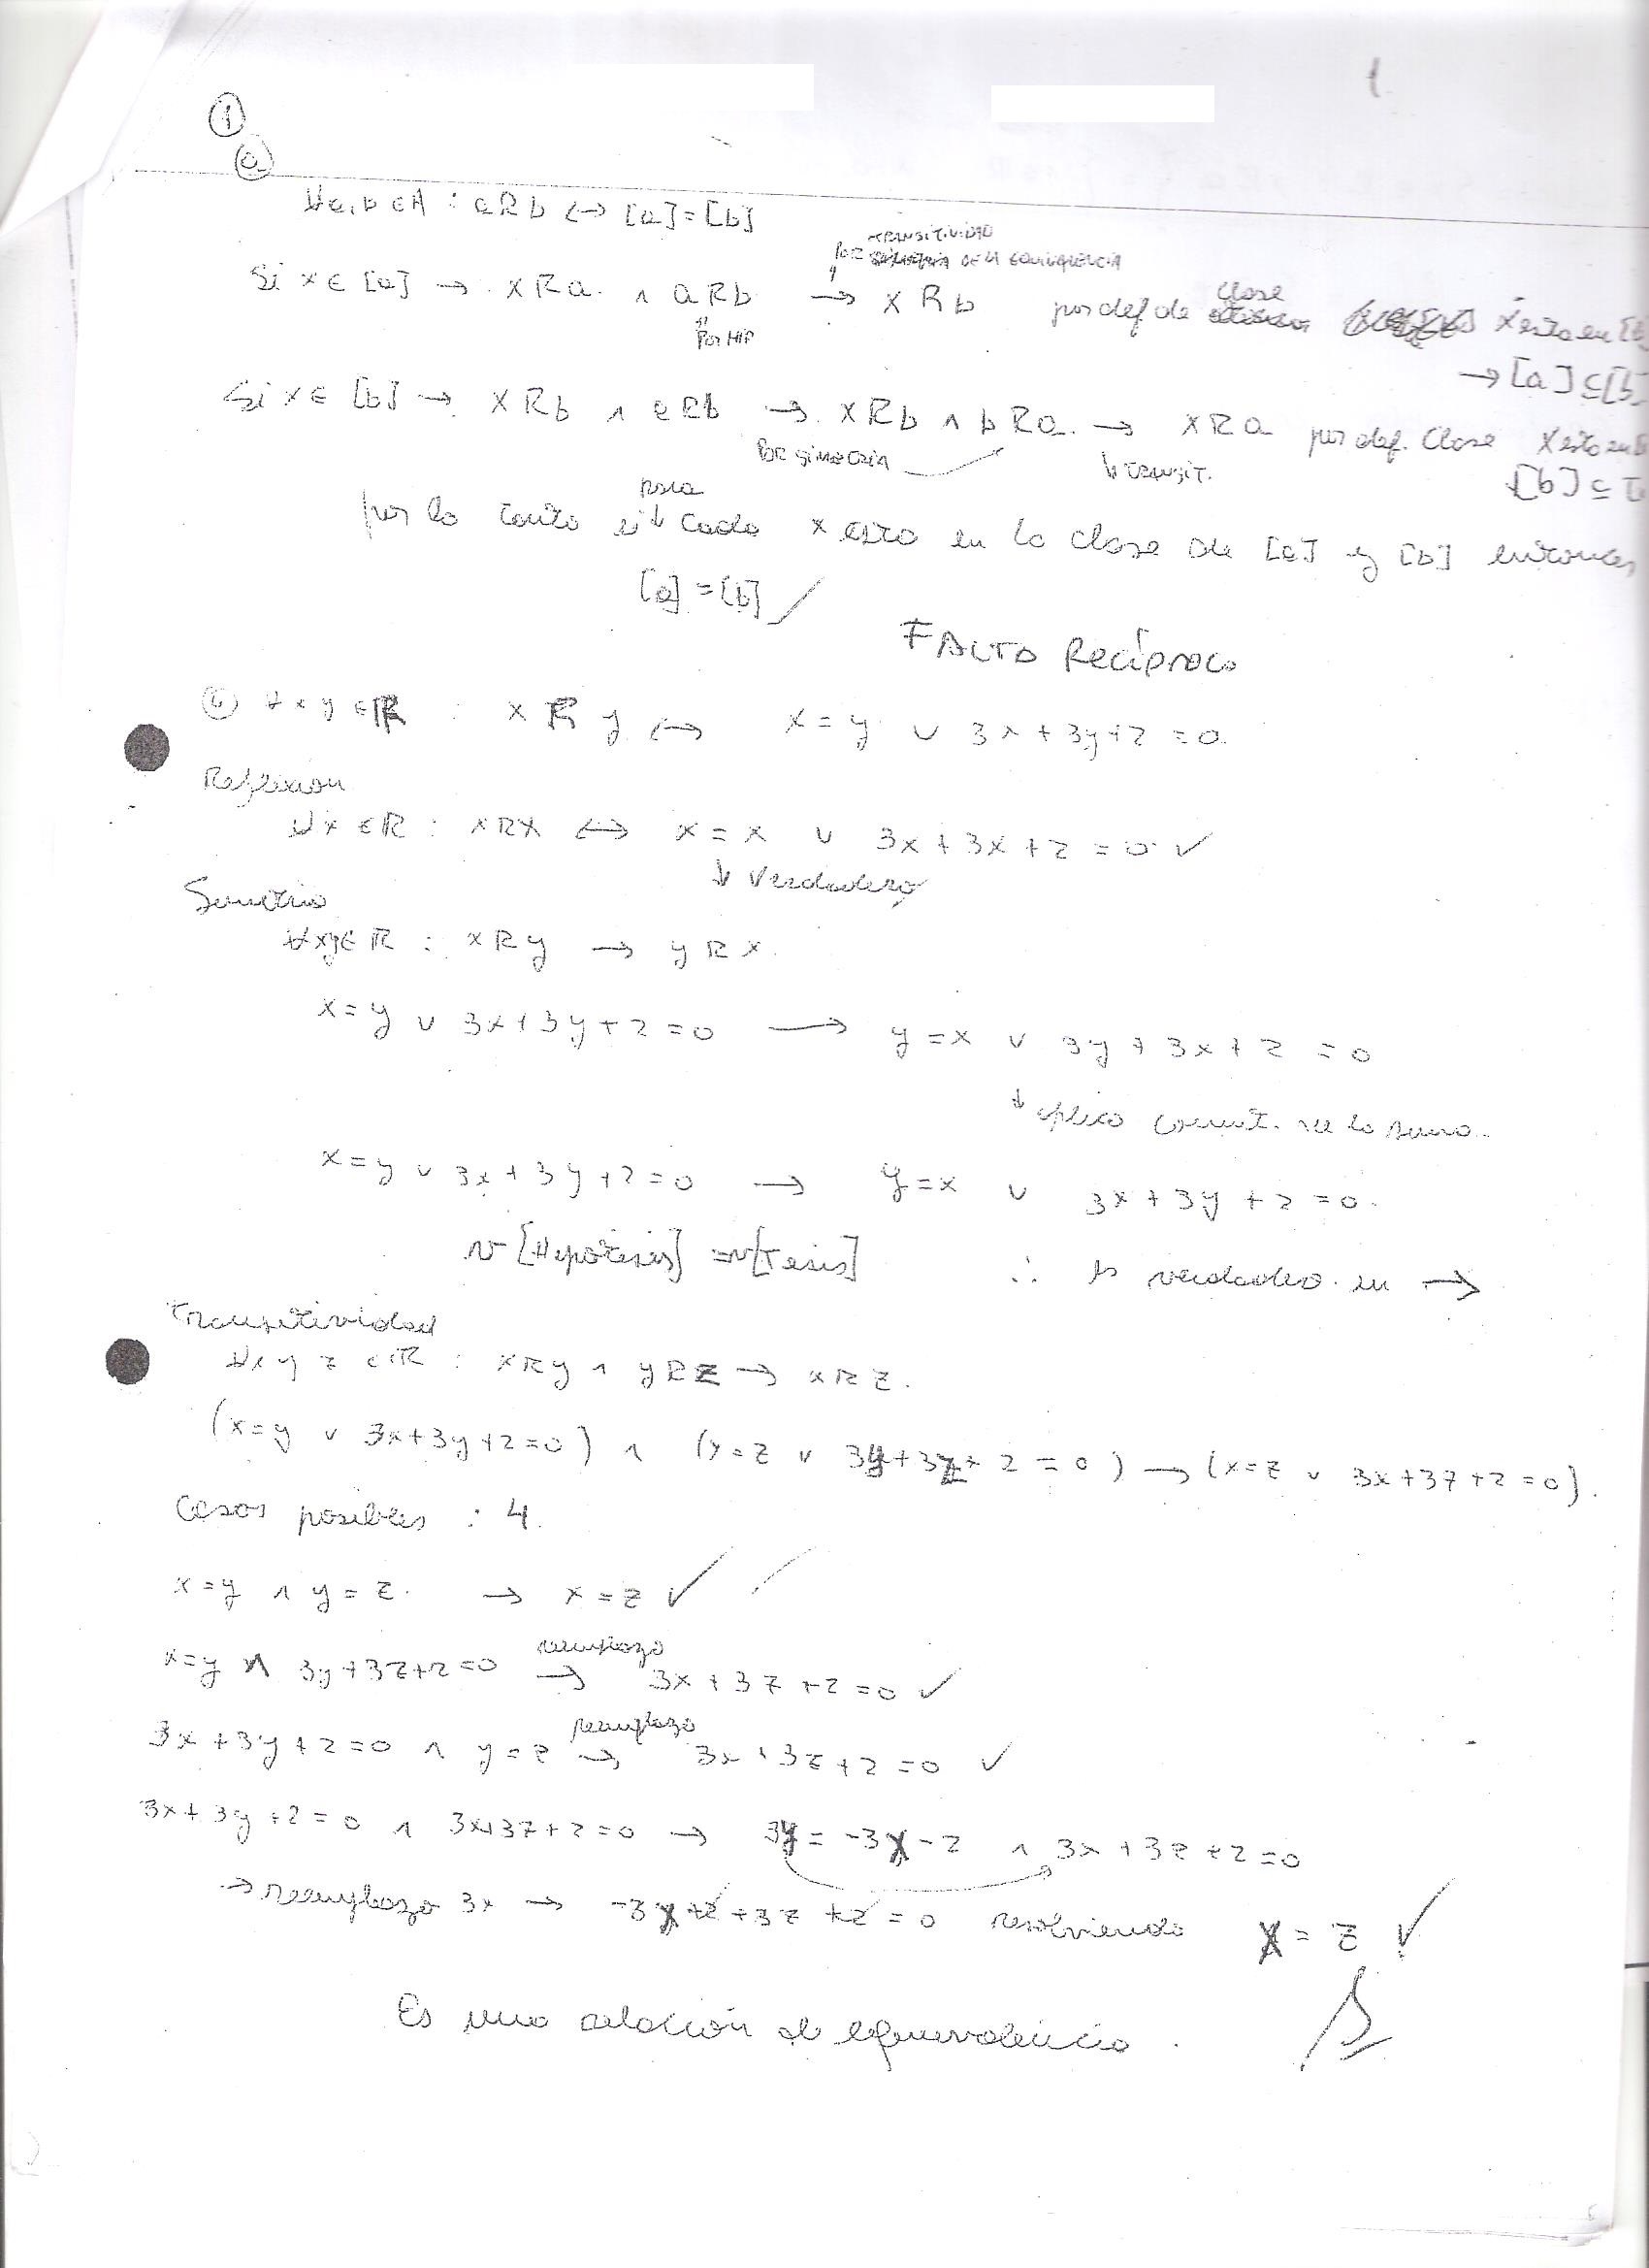 1
①
ⓐ
∀a,b ∈ A : aRb ↔ [a] = [b]
TRANSITIVIDAD
POR DE LA EQUIVALENCIA
Si x ∈ [a] → xRa ∧ aRb → xRb por def. de clase x esta en [b]
POR HIP
→ [a] ⊆ [b]
Si x ∈ [b] → xRb ∧ aRb → xRb ∧ bRa → xRa por def. Clase x esta en
POR SIMETRIA TRANSIT.
[b] ⊆ [a
por lo tanto si para cada x esta en la clase de [a] y [b] entonces
[a] = [b]
FALTO RECÍPROCO
ⓑ ∀ x y ∈ R : x R y ↔ x = y ∨ 3x + 3y + 2 = 0
Reflexion
∀x ∈ R : xRx ↔ x = x ∨ 3x + 3x + 2 = 0 ✓
↓ Verdadero
Simetria
∀xy ∈ R : xRy → yRx.
x = y ∨ 3x + 3y + 2 = 0 → y = x ∨ 3y + 3x + 2 = 0
↓ aplico conmut. de la suma.
x = y ∨ 3x + 3y + 2 = 0 → y = x ∨ 3x + 3y + 2 = 0.
v [Hipotesis] = v [Tesis] ∴ es verdadero en →
Transitividad
∀x y z ∈ R : xRy ∧ yRz → xRz.
(x = y ∨ 3x + 3y + 2 = 0) ∧ (y = z ∨ 3y + 3z + 2 = 0) → (x = z ∨ 3x + 3z + 2 = 0).
Casos posibles : 4.
x = y ∧ y = z. → x = z ✓
reemplazo
x = y ∧ 3y + 3z + 2 = 0 → 3x + 3z + 2 = 0 ✓
reemplazo
3x + 3y + 2 = 0 ∧ y = z → 3x + 3z + 2 = 0 ✓
3x + 3y + 2 = 0 ∧ 3x + 3z + 2 = 0 → 3y = -3x - 2 ∧ 3x + 3z + 2 = 0
→ reemplazo 3x → -3y + 2 + 3z + 2 = 0 resolviendo x = z ✓
Es una relación de equivalencia.
B